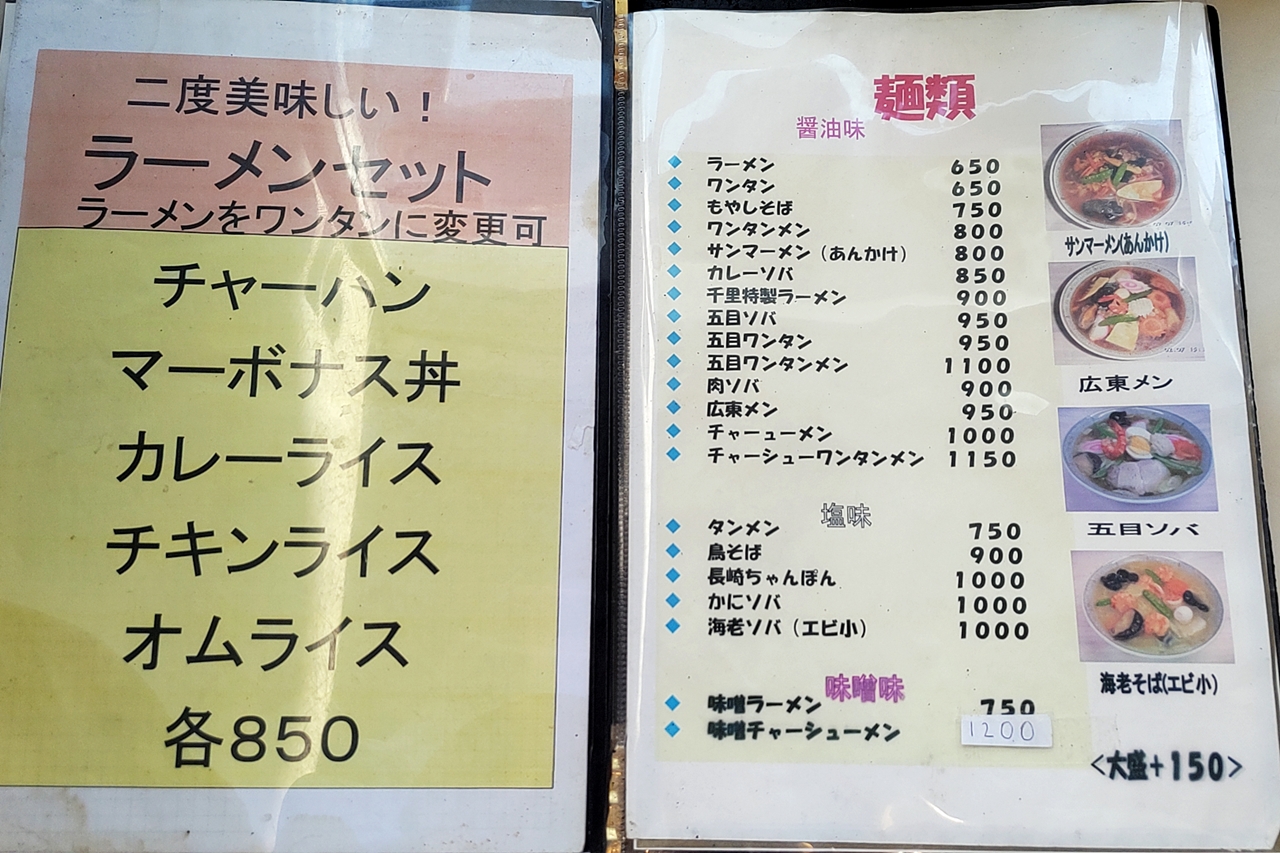 二度美味しい！
ラーメンセット
ラーメンをワンタンに変更可
チャーハン
マーボナス丼
カレーライス
チキンライス
オムライス
各850
麺類
醤油味
ラーメン 650
ワンタン 650
もやしそば 750
ワンタンメン 800
サンマーメン（あんかけ） 800
カレーソバ 850
千里特製ラーメン 900
五目ソバ 950
五目ワンタン 950
五目ワンタンメン 1100
肉ソバ 900
広東メン 950
チャーューメン 1000
チャーシューワンタンメン 1150
塩味
タンメン 750
鳥そば 900
長崎ちゃんぽん 1000
かにソバ 1000
海老ソバ（エビ小） 1000
味噌味
味噌ラーメン 750
味噌チャーシューメン 1200
サンマーメン(あんかけ)
広東メン
五目ソバ
海老そば(エビ小)
<大盛+150>